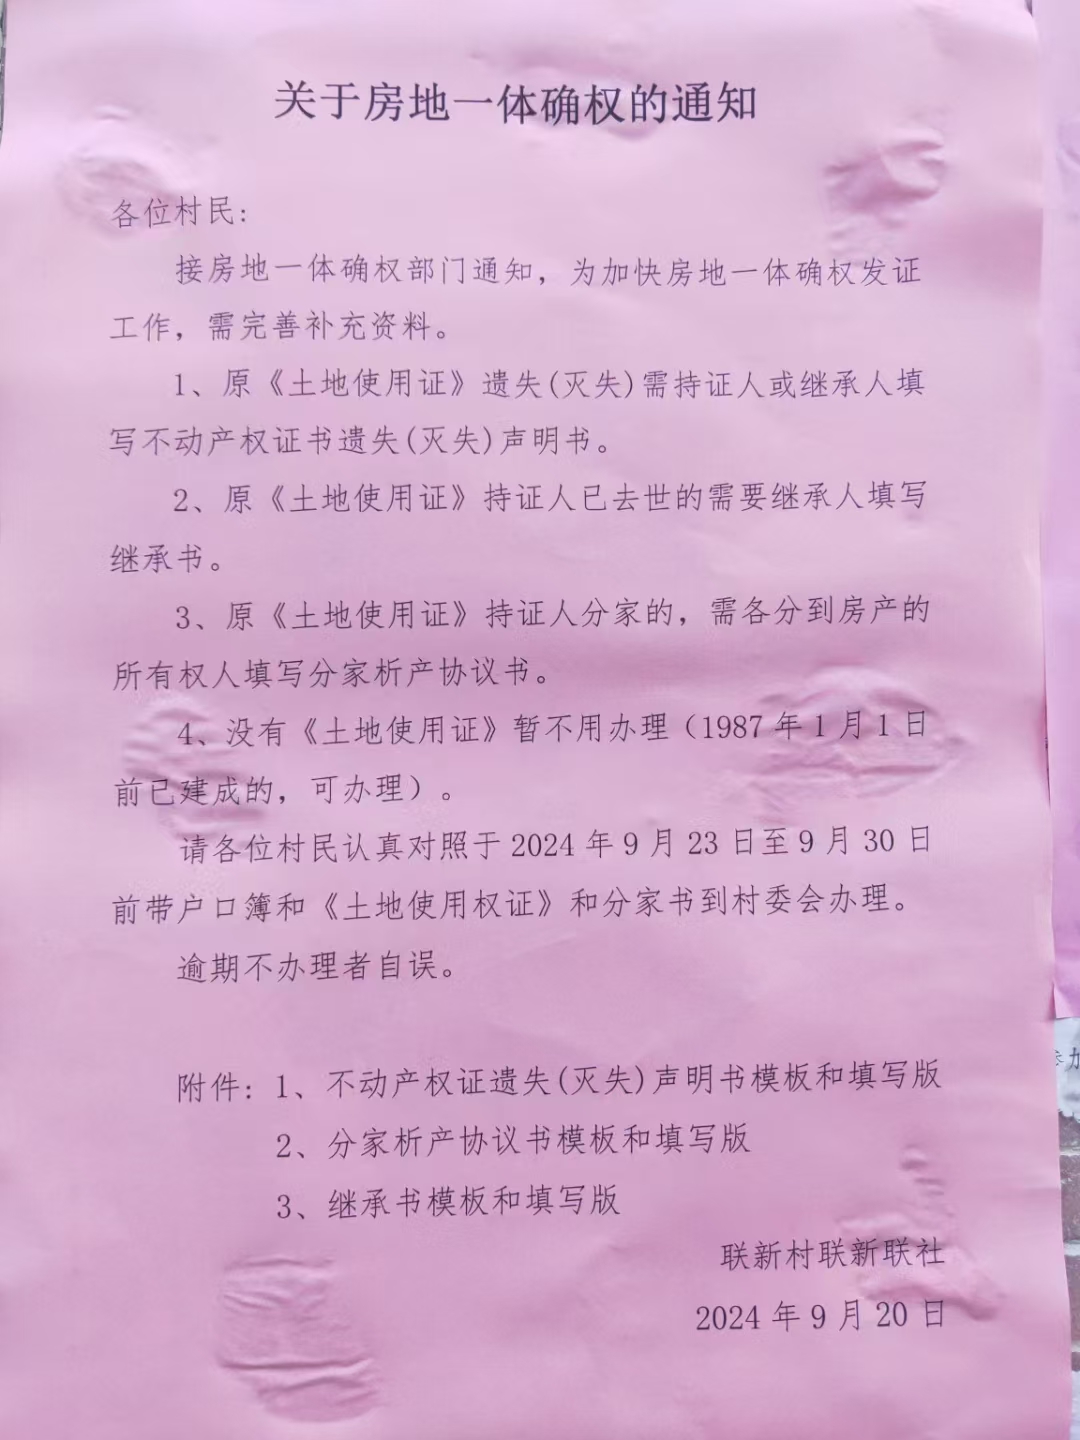 关于房地一体确权的通知
各位村民:
接房地一体确权部门通知，为加快房地一体确权发证
工作，需完善补充资料。
1、原《土地使用证》遗失(灭失)需持证人或继承人填
写不动产权证书遗失(灭失)声明书。
2、原《土地使用证》持证人已去世的需要继承人填写
继承书。
3、原《土地使用证》持证人分家的，需各分到房产的
所有权人填写分家析产协议书。
4、没有《土地使用证》暂不用办理（1987年1月1日
前已建成的，可办理）。
请各位村民认真对照于2024年9月23日至9月30日
前带户口簿和《土地使用权证》和分家书到村委会办理。
逾期不办理者自误。
附件: 1、不动产权证遗失(灭失)声明书模板和填写版
2、分家析产协议书模板和填写版
3、继承书模板和填写版
联新村联新联社
2024年9月20日